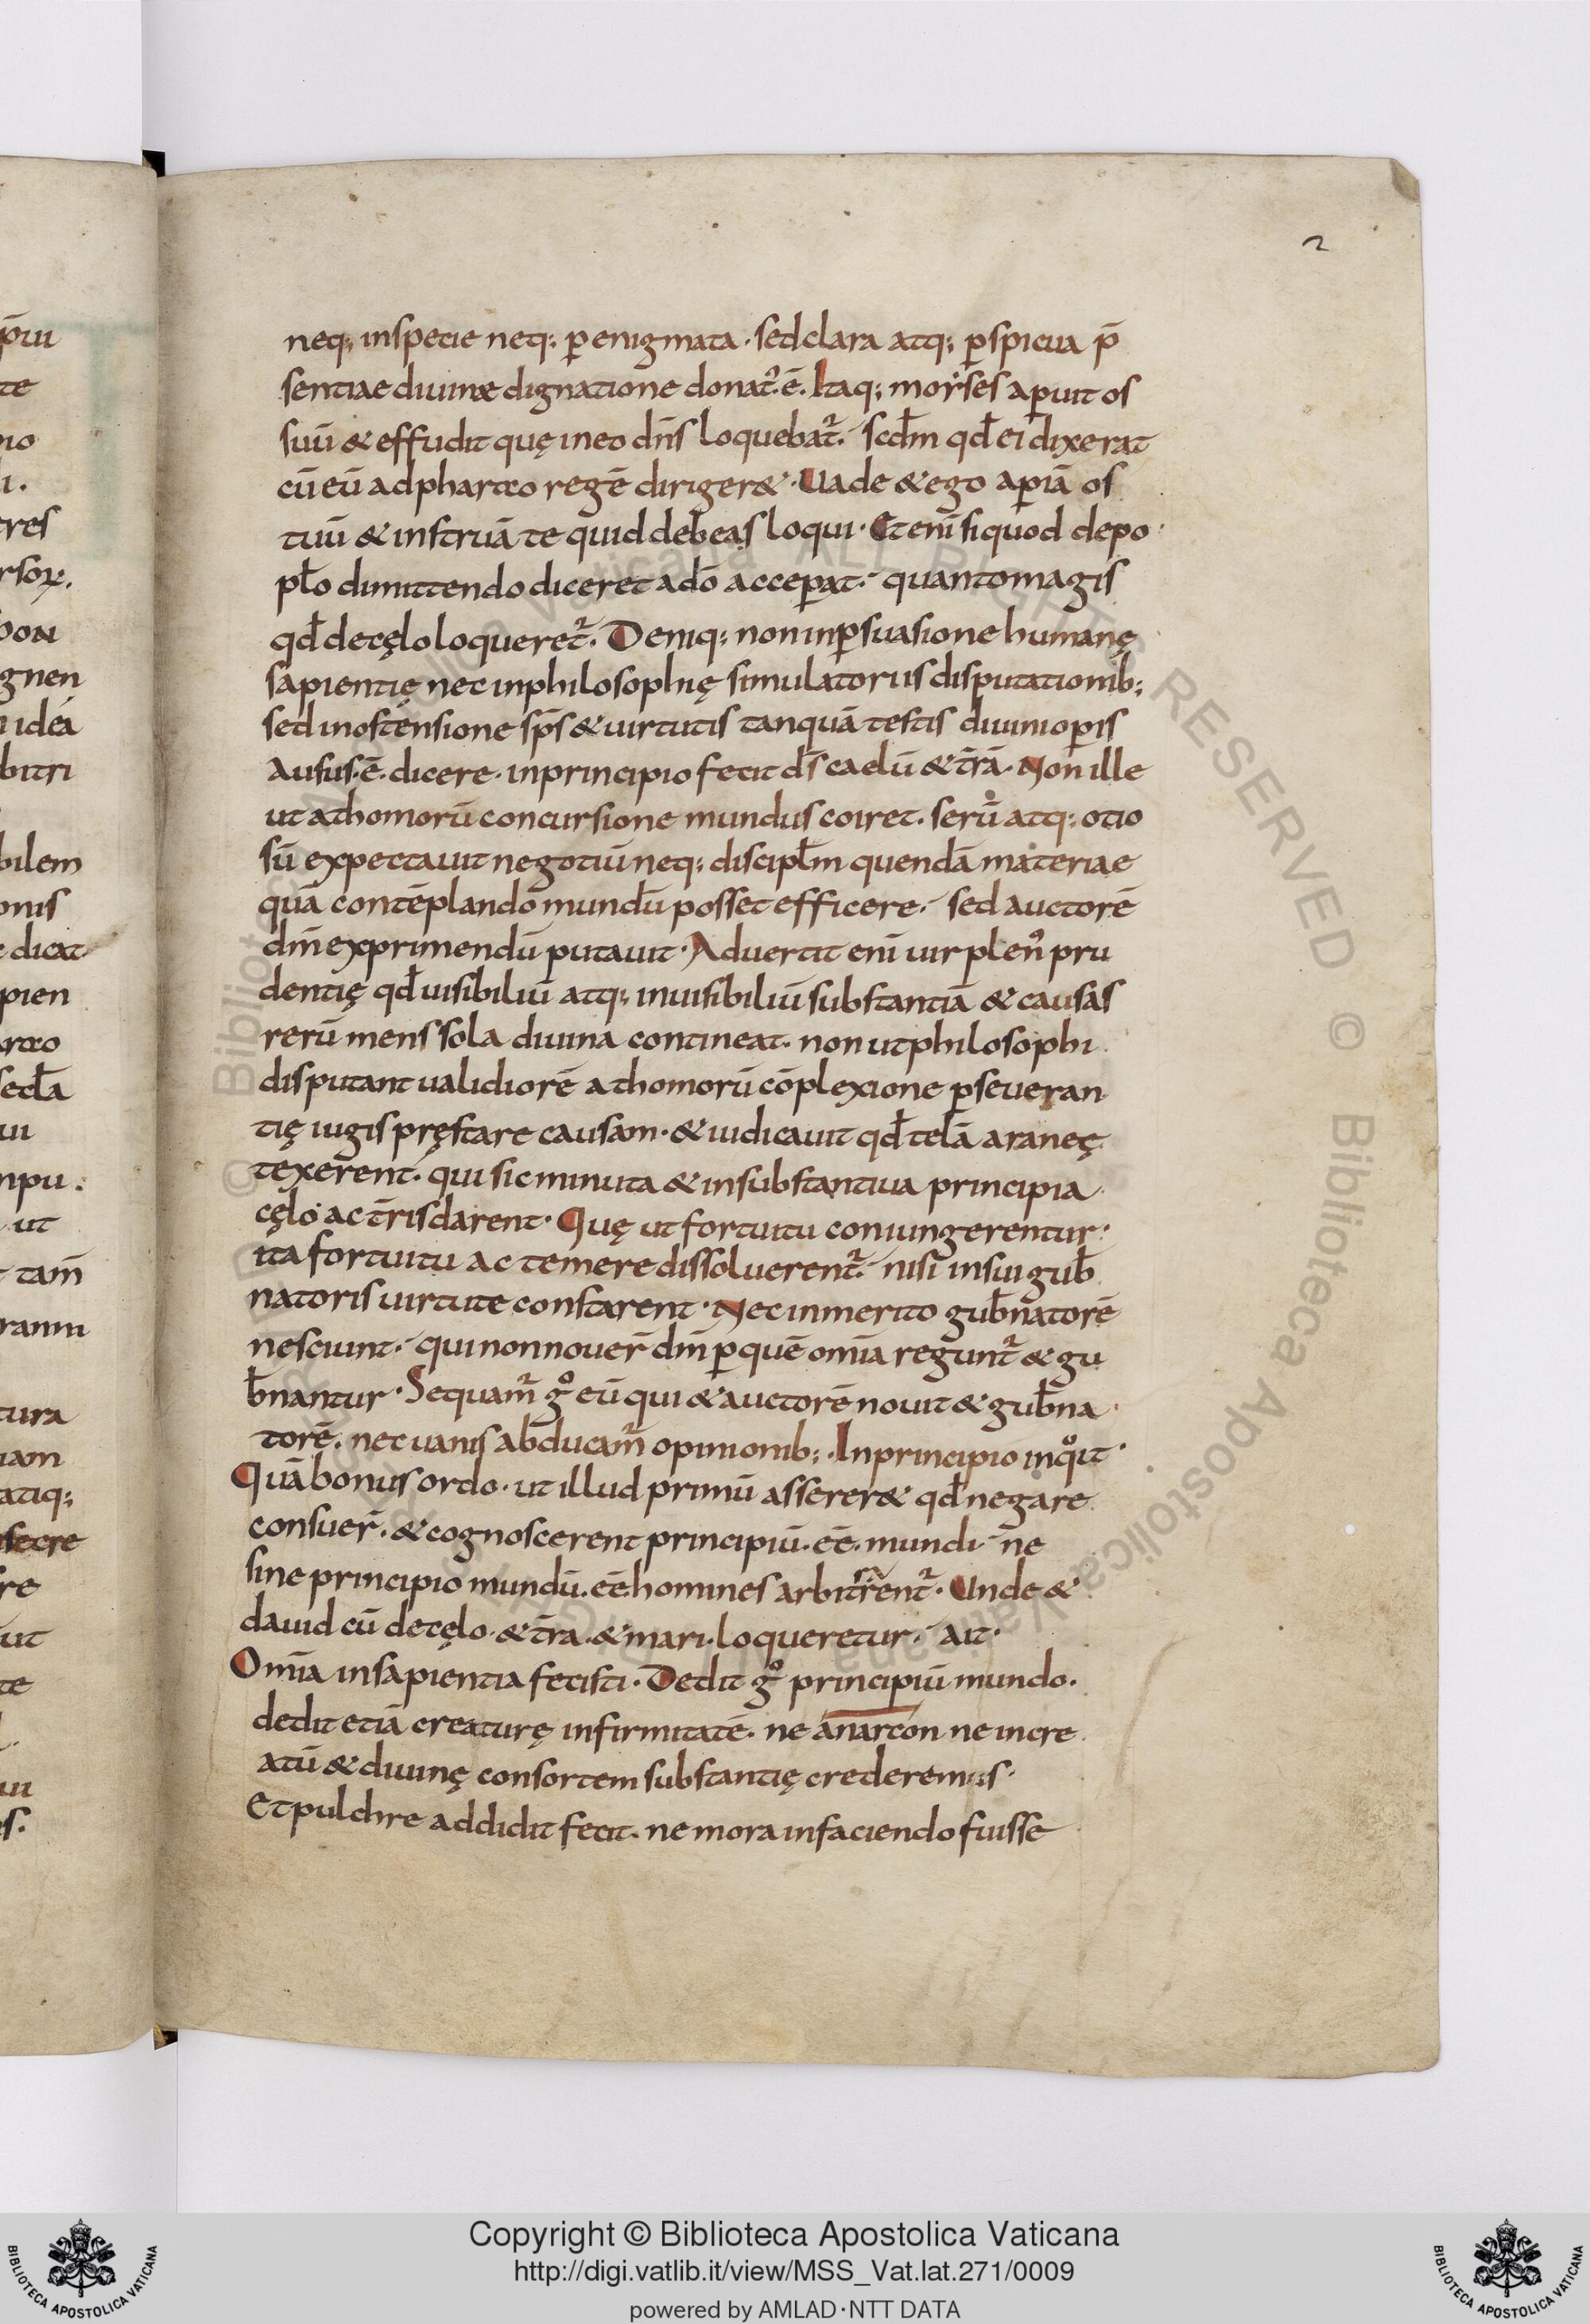 2
neq; inspecie neq; p̲ enigmata · sedclara atq; p̲spicua p̄
sentiae diuinae dignatione donat᾽.ē. Itaq; moyses ap̲uit os
suū & effudit quę ineo dn̄s loquebat᷑. scd̄m qd̄ ei dixerat
cū eū adpharao regē diriger&· Uade & ego ap̲iā os
tuū & instruā te quid debeas loqui· Et eni̅ siquod depo
pl̄o dimittendo diceret ado̅ accep̲at. quantomagis
qd̄ decęlo loqueret᷑. Deniq; noninp̲suasione humanę
sapientię nec inphilosophię simulatoriis disputationib;
sed inostensione sp̄s & uirtutis tanquā testis diuini op̲is
Ausus.ē. dicere· inprincipio fecit d̄s caelū & t̄rā· Non ille
ut athomorū concursione mundus coiret. serū atq; otio
sū expectauit negotiū neq; discipl̄m quendā materiae
quā contēplando mundū posset efficere. sed auctorē
dm̄ exprimendū putauit· Aduertit eni̅ uir plen᾽ pru
dentię qd̄ uisibiliū atq; inuisibiliū substantiā & causas
rerū mens sola diuina contineat. non utphilosophi
disputant ualidiorē athomorū cōplexione p̲seueran
tię iugis pręstare causam· & iudicauit qd̄ telā araneę
texerent. qui sic minuta & insubstantiua principia
cęlo ac t̄ris darent· Quę ut fortuitu coniungerentur·
ita fortuitu ac temere dissoluerent᷑. nisi insui gub̄
natoris uirtute constarent· Nec inmerito gub̄natorē
nesciunt. qui nonnouer̄ dm̄ p̲quē om̄ia regunt᷑ & gu
b̄nantur· Sequam᷑ gͦ eū qui & auctorē nouit & gub̄na
torē. nec uanis abducam᷑ opinionib; · Inprincipio inqͦit·
Quā bonus ordo· ut illud primū asserer& qd̄ negare
consuer̄. & cognoscerent principiū.ēē. mundi. ne
sine principio mundū.ēē. homines arbitrarent᷑. Unde &
dauid cū decęlo & t̄ra. & mari. loqueretur. ait·
Om̄ia insapientia fecisti· Dedit gͦ principiū mundo.
dedit etiā creaturę infirmitatē. ne anarcon ne incre
atū & diuinę consortem substantię crederemus·
Et pulchre addidit fecit. ne mora infaciendo fuisse
Copyright © Biblioteca Apostolica Vaticana
http://digi.vatlib.it/view/MSS_Vat.lat.271/0009
powered by AMLAD·NTT DATA